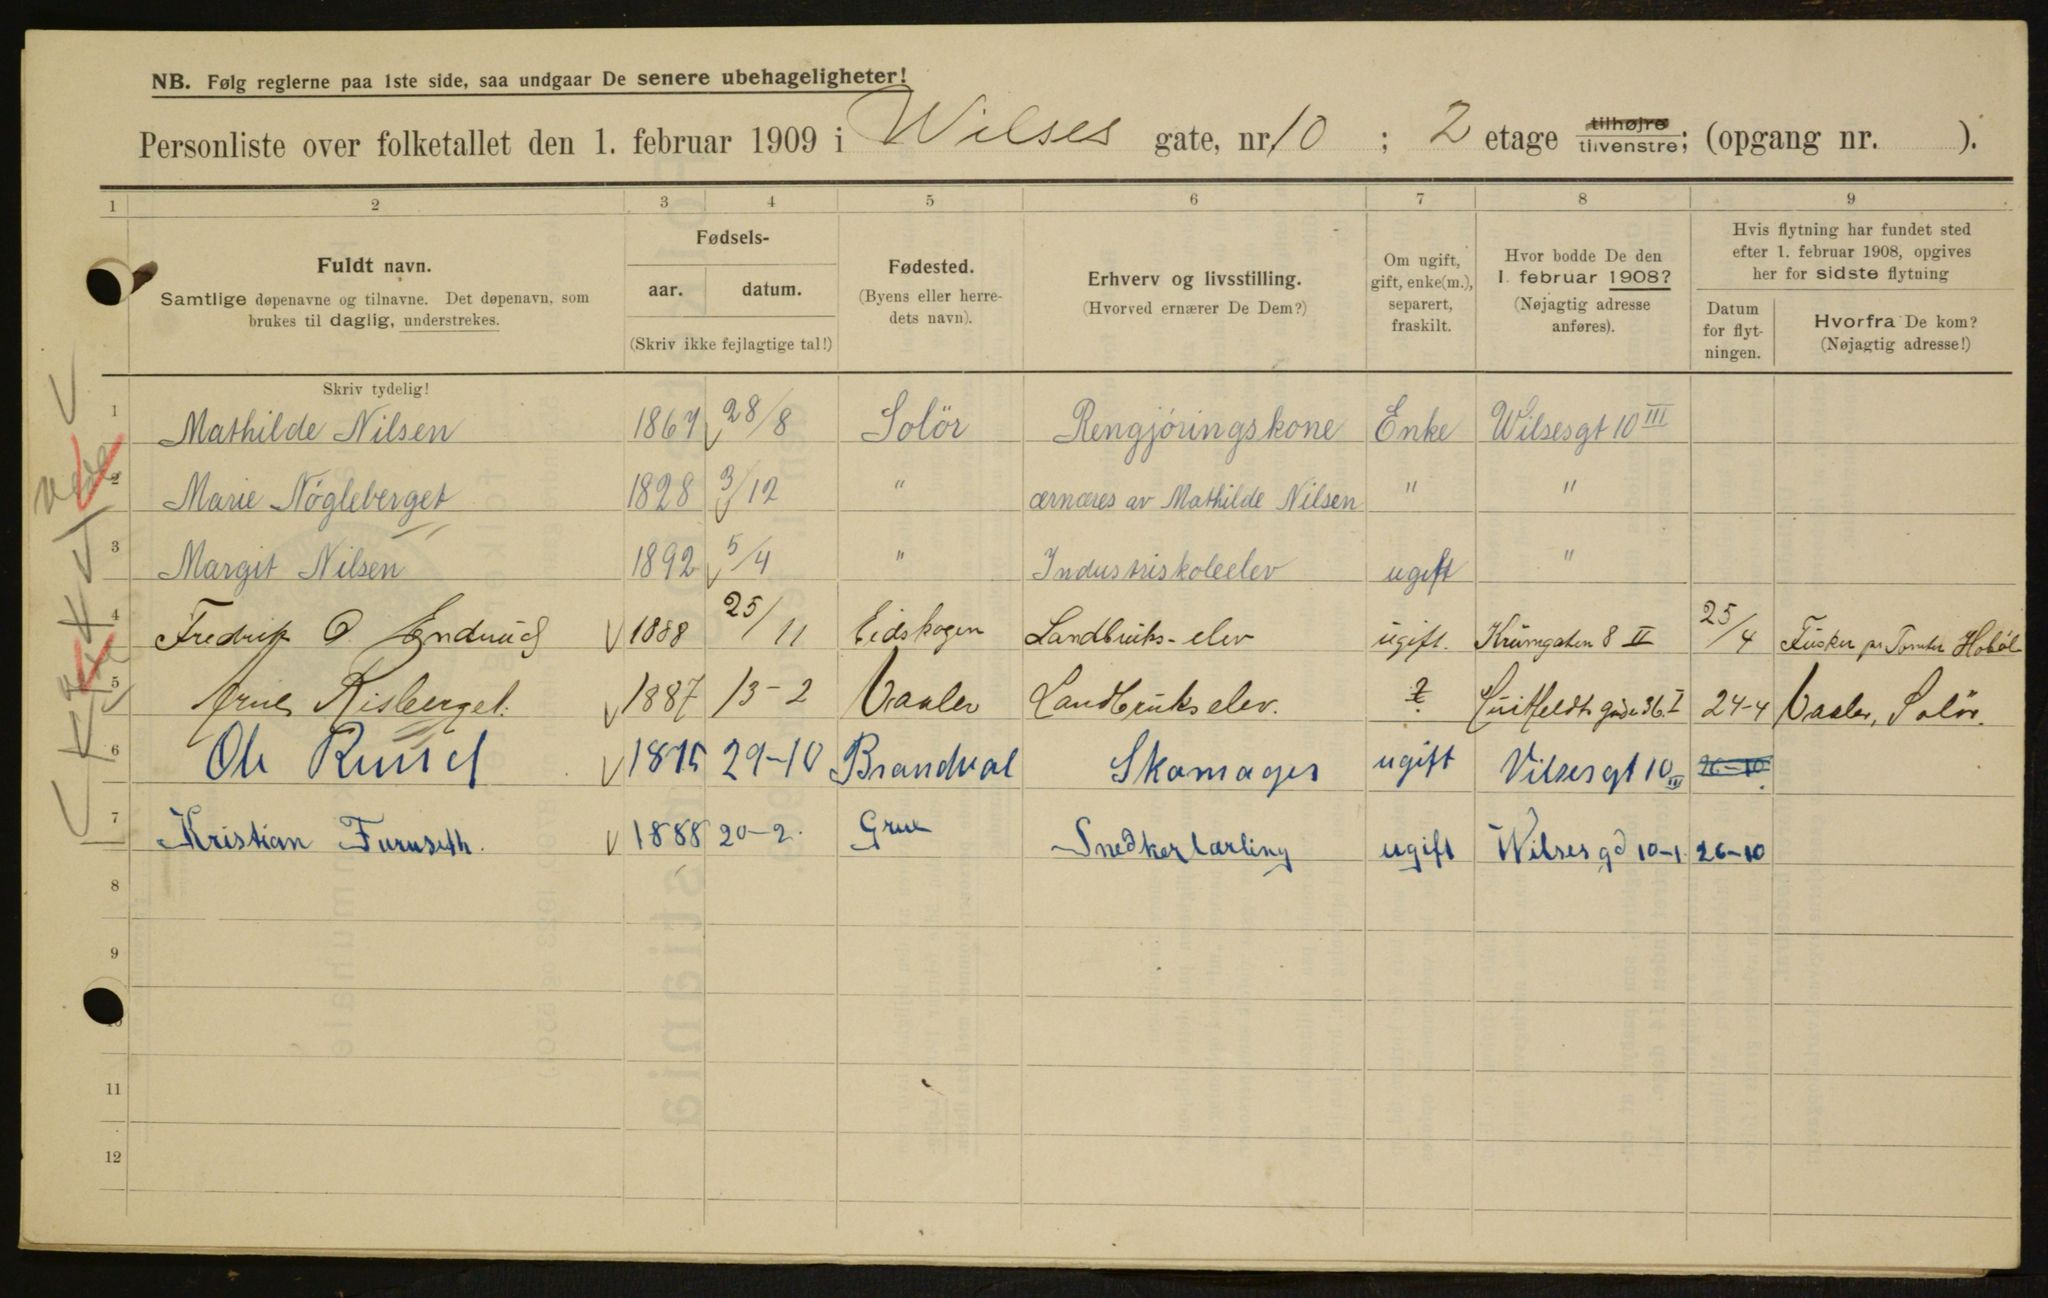 NB. Følg reglerne paa 1ste side, saa undgaar De senere ubehageligheter!
Personliste over folketallet den 1. februar 1909 i Wilses gate, nr. 10 ; 2 etage tilhøjre tilvenstre; (opgang nr. ).
1 2 3 4 5 6 7 8 9
Fuldt navn.
Samtlige døpenavne og tilnavne. Det døpenavn, som
brukes til daglig, understrekes.
Skriv tydelig!
Fødsels-
aar. datum.
(Skriv ikke fejlagtige tal!)
Fødested.
(Byens eller herre-
dets navn).
Erhverv og livsstilling.
(Hvorved ernærer De Dem?)
Om ugift,
gift, enke(m.),
separert,
fraskilt.
Hvor bodde De den
1. februar 1908?
(Nøjagtig adresse
anføres).
Hvis flytning har fundet sted
efter 1. februar 1908, opgives
her for sidste flytning
Datum
for flyt-
ningen.
Hvorfra De kom?
(Nøjagtig adresse!)
1 Mathilde Nilsen 1867 28/8 Solör Rengjöringskone Enke Wilsesgt 10 III
2 Marie Nögleberget 1828 3/12 " ærnæres av Mathilde Nilsen " "
3 Margit Nilsen 1892 5/4 " Industriskoleelev ugift "
4 Fredrik O 1888 25/11 Eidskogen Landbruks-elev ugift. Krumgaten 8 II 25/4 Tomter Hobøl
5 Arne Risberget. 1887 13-2 Vaaler Landbrukselev. Huitfeldts gade 36 I 24-4 Vaaler, Solör.
6 Ole 1875 29-10 Brandval Skomager ugift Vilsesgt 10 III 26-10
7 Kristian Furuseth. 1888 20-2. Grue Snedkerlærling ugift Wilses gd 10-1 26-10
8
9
10
11
12